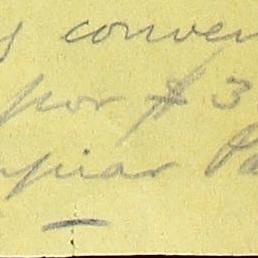 y conven
por $ 3
mpiar Pa